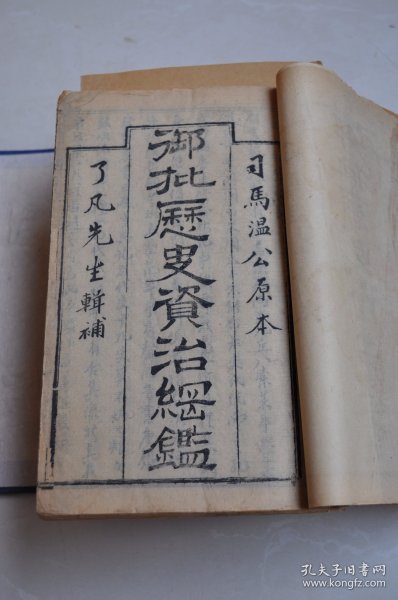 司馬温公原本
御批歷史資治綱鑑
了凡先生輯補
孔夫子旧书网
www.kongfz.com